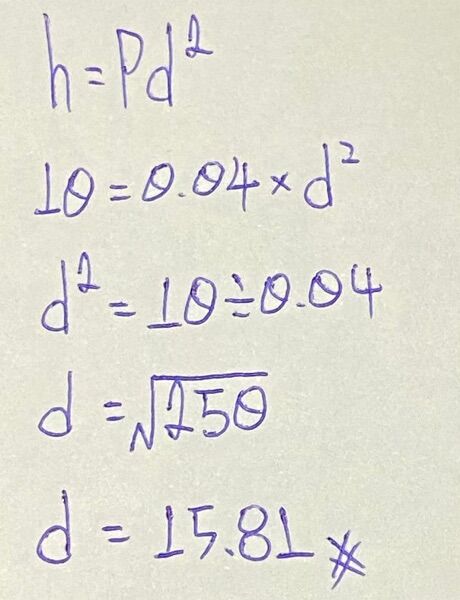 h=Pd²
10=0.04×d²
d²=10÷0.04
d=√250
d=15.81